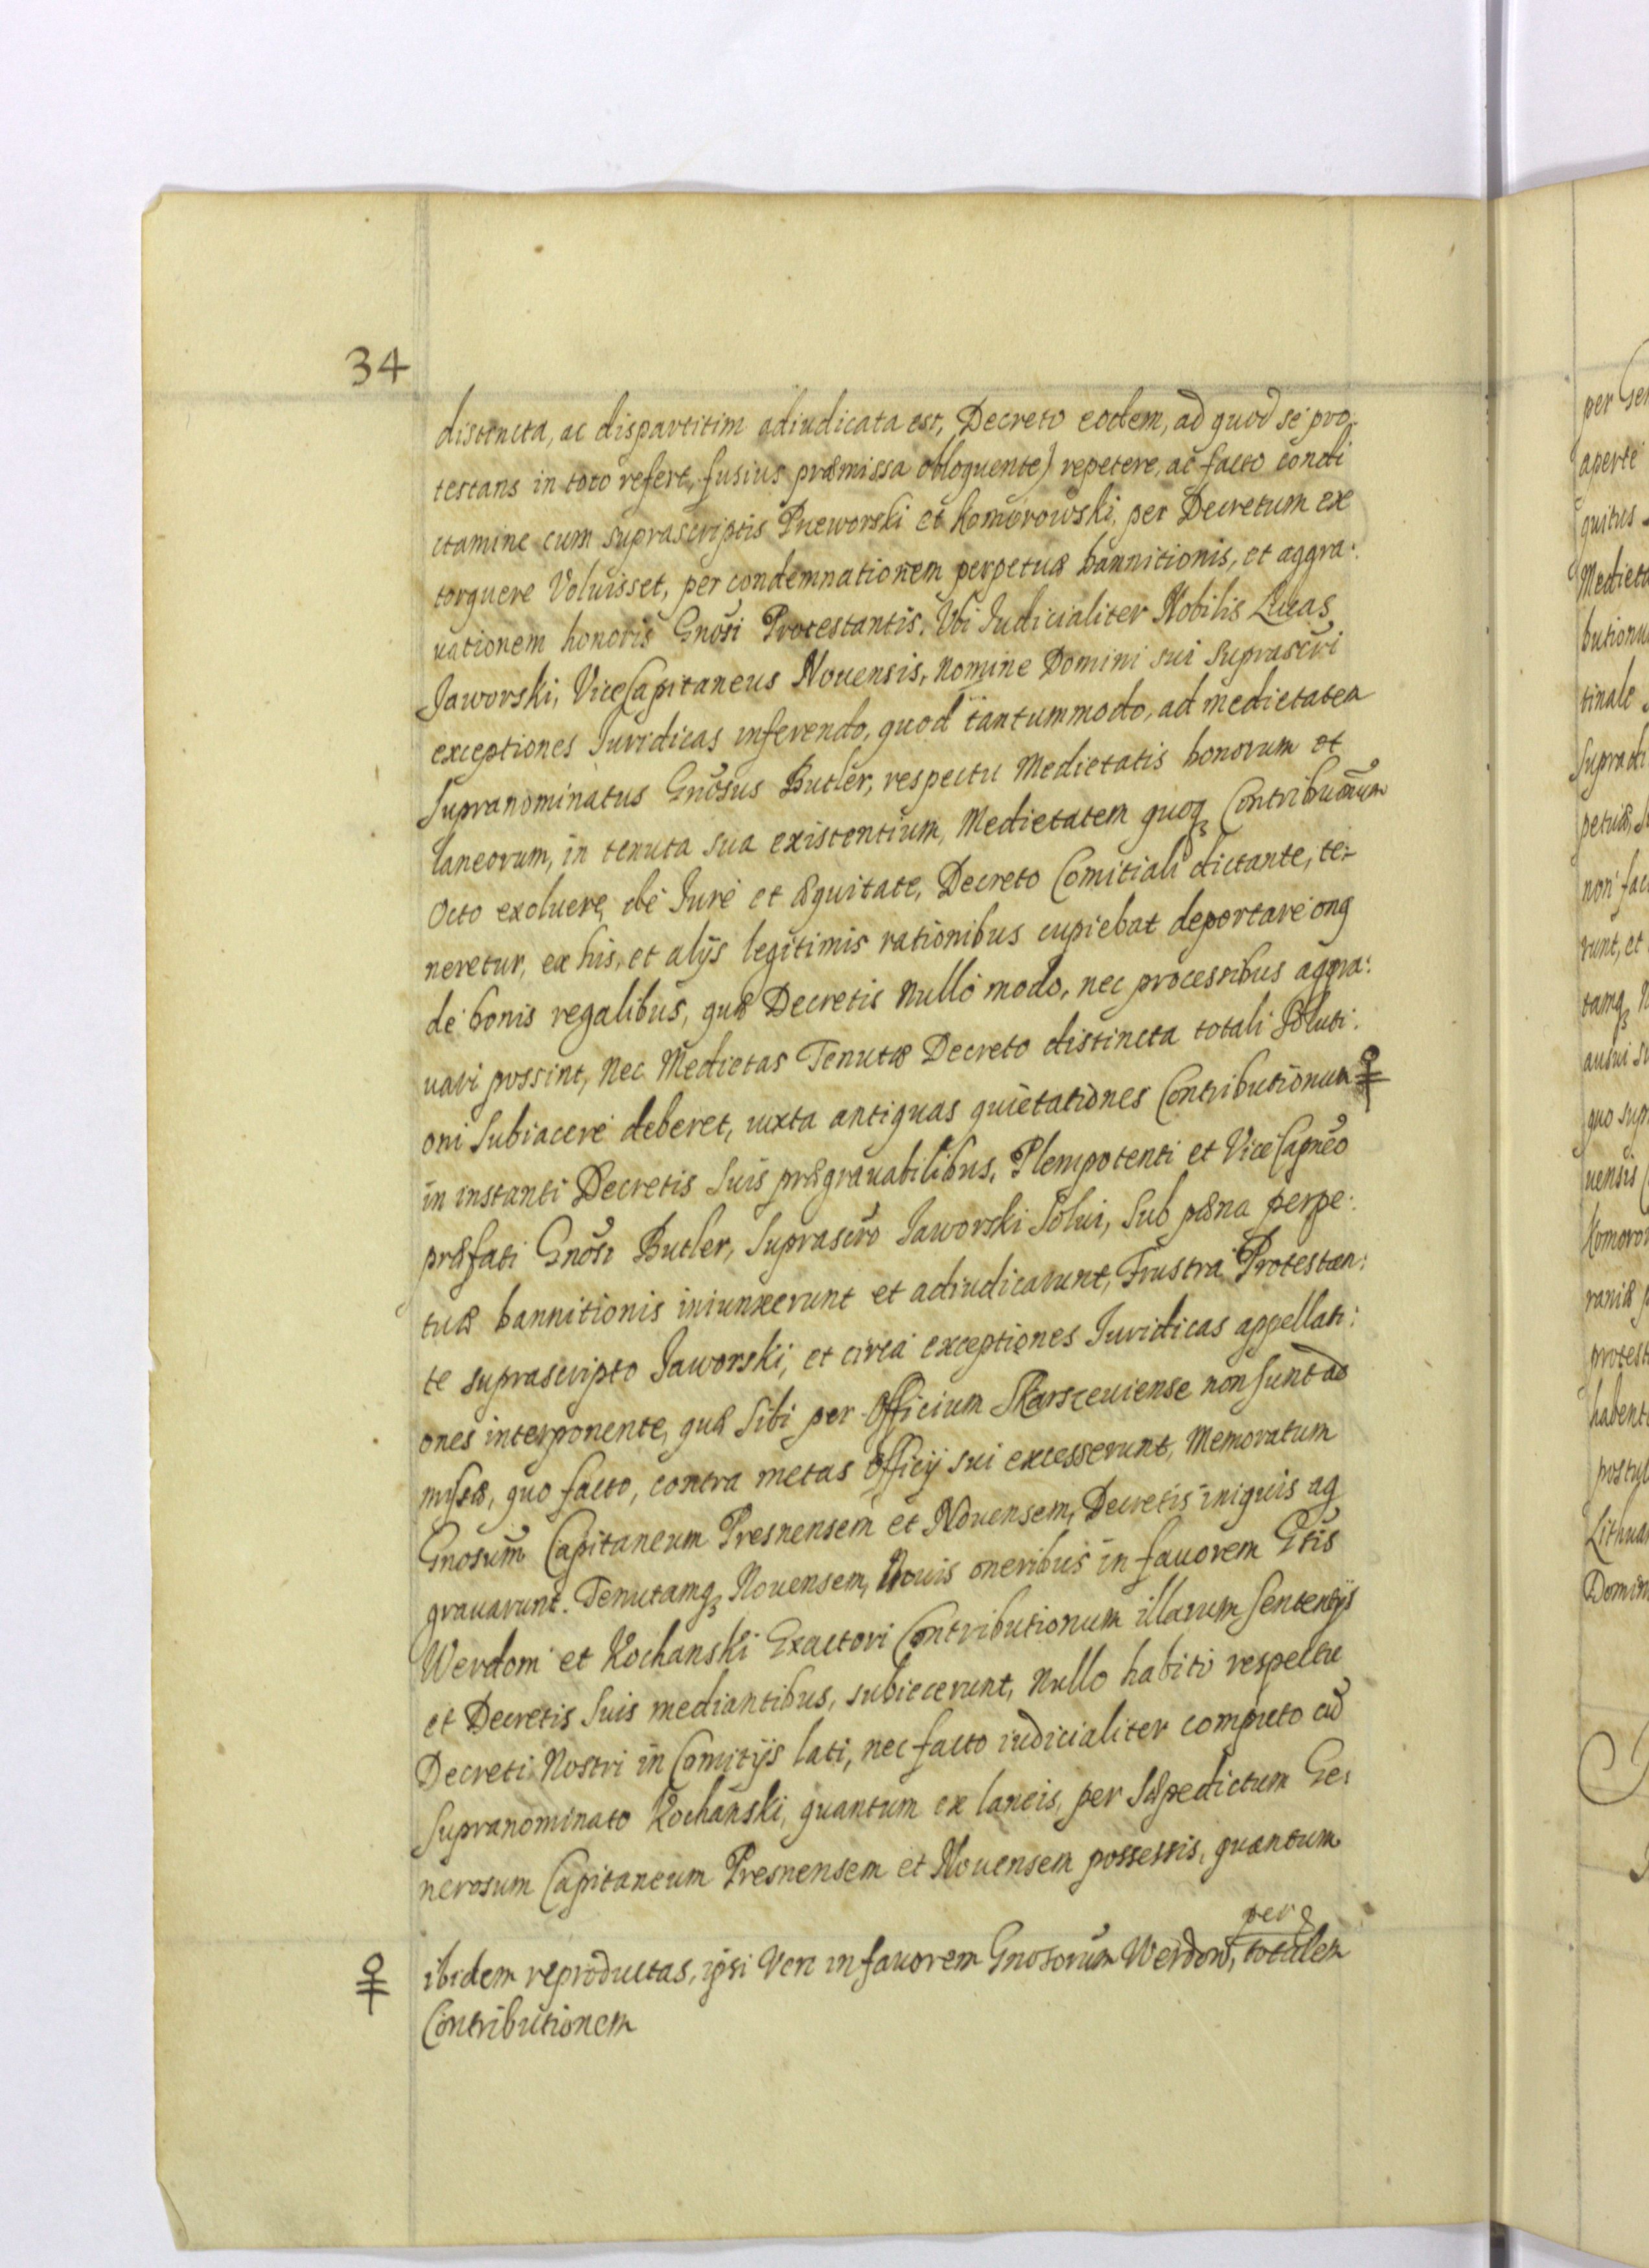 34
distincta, ac dispartitim adiudicata est, Decreto eodem, ad quod se pro:
testans in toto refert, fusius præmissa obloquente) repetere, ac facto condi
ctamine cum suprascriptis Pneworski et Komorowski, per Decretum ex
torquere Voluisset, per condemnationem perpetuæ bannitionis, et aggra:
uationem honoris Gnosi Protestantis. Vbi Iudicialiter Nobilis Lucas
Jaworski, ViceCapitaneus Nouensis, nomine Domini sui suprascri
exceptiones Iuridicas inferendo, quod tantummodo, ad medietatem
Supranominatus Gnosus Butler, respectu Medietatis bonorum et
laneorum, in tenuta sua existentium, Medietatem quoq Contribuonum
Octo exoluere, de Iure et æquitate, Decreto Comitiali dictante, te:
neretur, ex his, et alijs legitimis rationibus cupiebat deportare onq
de bonis regalibus, quæ Decretis nullo modo, nec processibus aggra:
uari possint, Nec Medietas Tenutæ Decreto distincta totali Soluti:
oni Subiacere deberet, iuxta antiquas quietationes Contributionum ♀
in instanti Decretis Suis prægrauabilibus, Plenipotenti et ViceCapneo
præfati Gnosi Butler, Suprascro Jaworski Solui, Sub pæna perpe:
tuæ bannitionis iniunxerunt et adiudicarunt, Frustra Protestan:
te suprascripto Jaworski, et circa exceptiones Iuridicas appellati:
ones interponente, quæ Sibi per Officium Skarszeuiense non sunt ad
missæ, quo facto, contra metas Officij sui excesserunt, Memoratum
Gnosum Capitaneum Presnensem et Nouensem, Decretis iniquis ag
grauarunt. Tenutamq Nouensem, Nouis oneribus in fauorem Gtis
Werdom et Kochanski Exactori Contributionum illarum Sententijs
et Decretis Suis mediantibus, subiecerunt, Nullo habito respectu
Decreti Nostri in Comitijs lati, nec facto iudicialiter computo cu
Supranominato Kochanski, quantum ex laneis, per Sæpedictum Ge:
nerosum Capitaneum Presnensem et Nouensem possessis, quantum
♀ ibidem reproductas, ipsi Vero in fauorem Gnosorum Werdom, per totalem
Contributionem